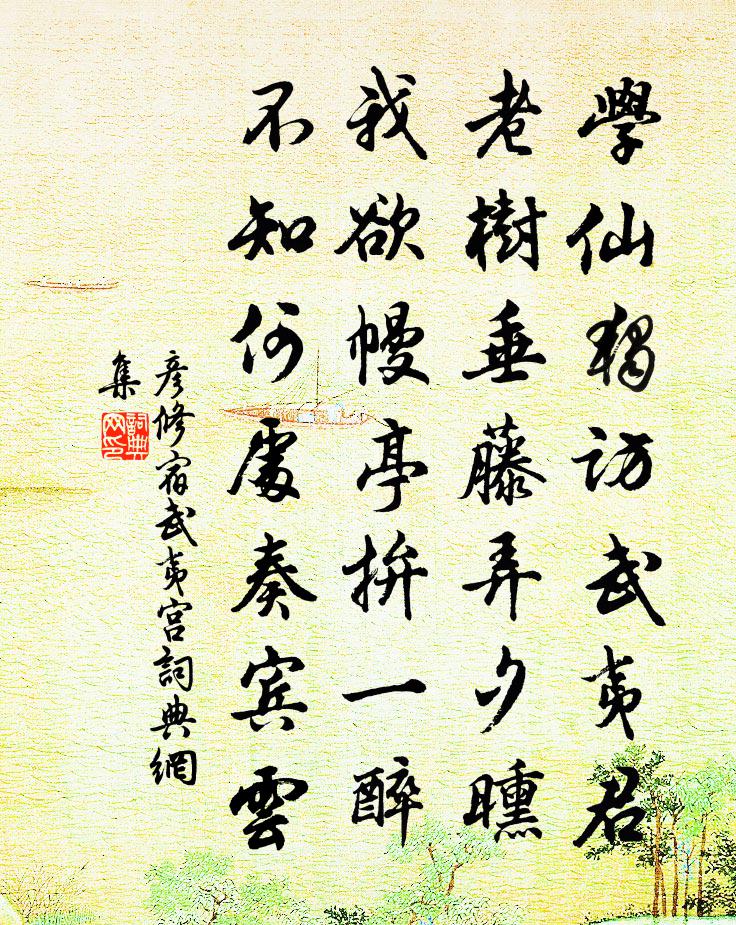 學仙獨訪武夷君
老樹垂藤弄夕曛
我欲幔亭拚一醉
不知何處奏賓雲
彦修宿武夷宮詞典網
集
詞典
網印